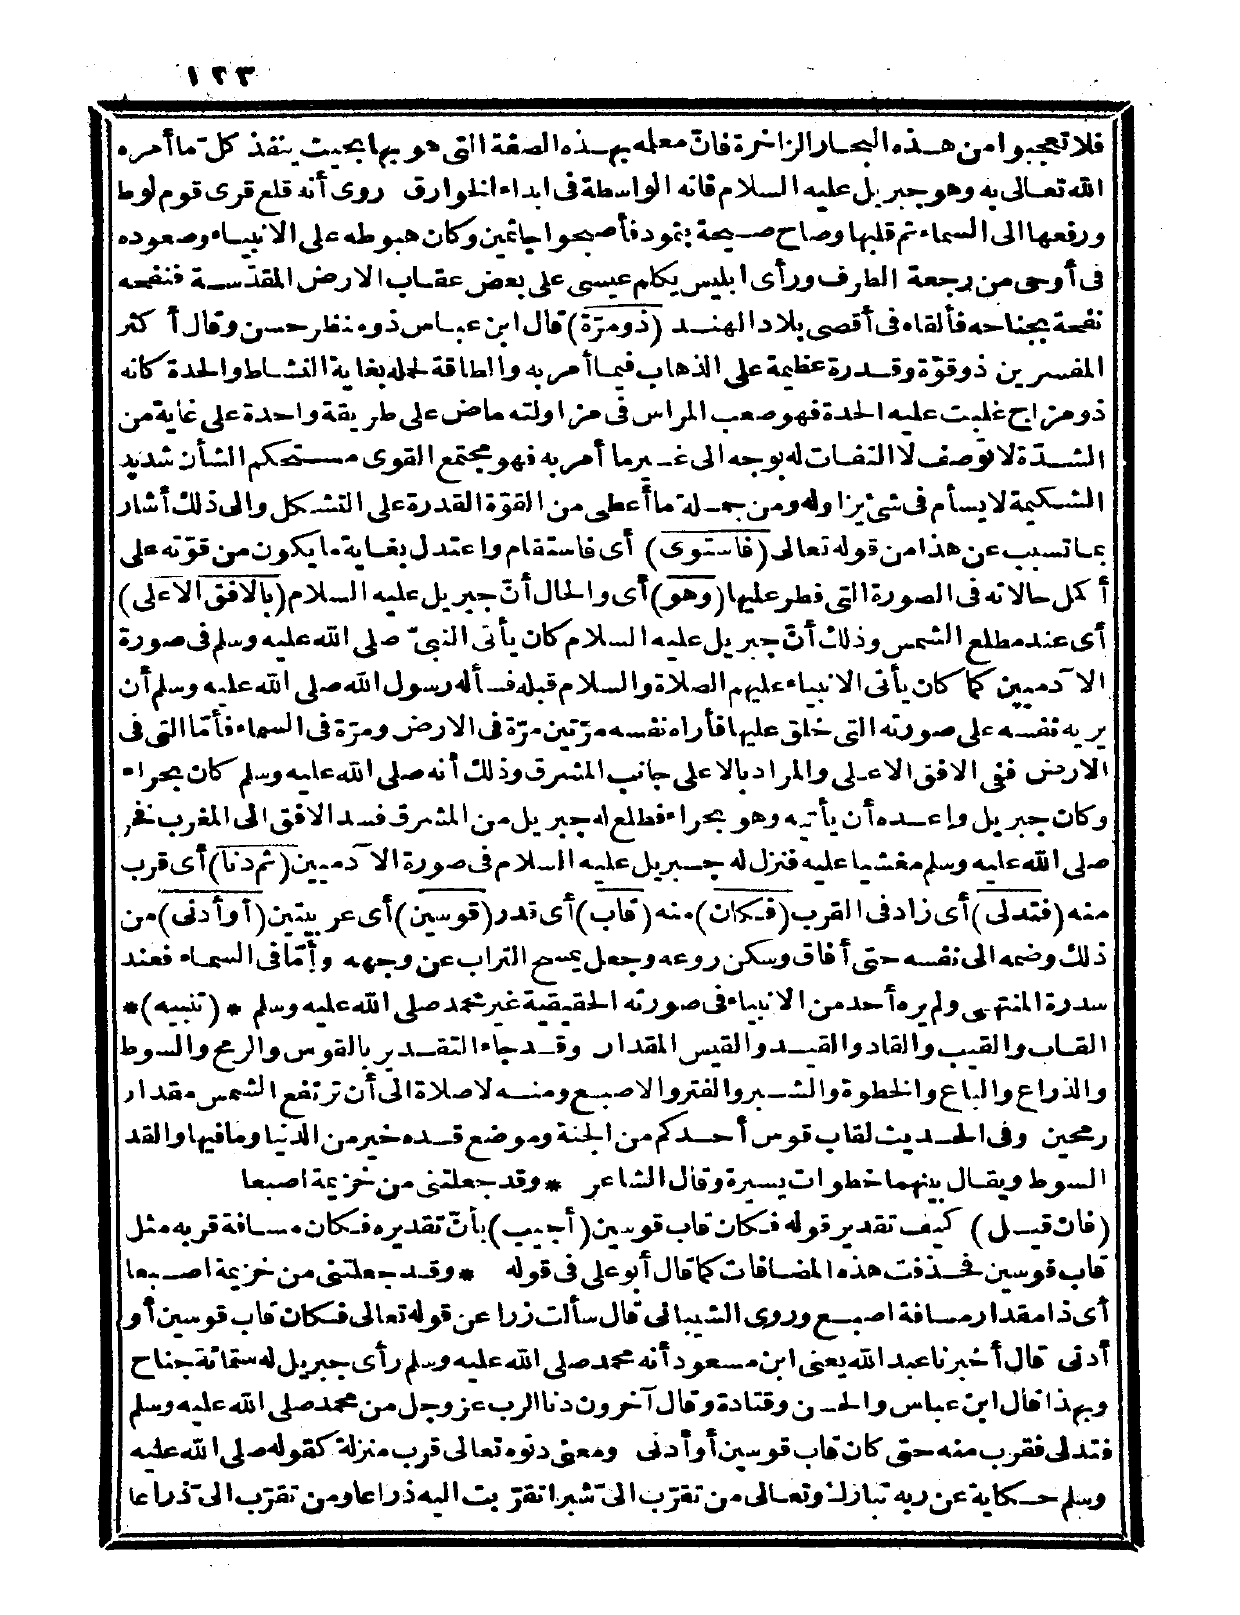 ١٢٣
فلا تعجبوا من هذه البحار الزاخرة فانّ معلمه بهذه الصفة التى هو بها بحيث ينفذ كلّ ما أمره
الله تعالى به وهو جبريل عليه السلام فانه الواسطة فى ابداء الخوارق روى أنه قلع قرى قوم لوط
ورفعها الى السماء ثم قلبها وصاح صيحة بثمود فأصبحوا جاثمين وكان هبوطه على الانبياء وصعوده
فى أوحى من رجعة الطرف ورأى ابليس يكلم عيسى على بعض عقاب الارض المقدّسة فنفحه
نفحة بجناحه فألقاه فى أقصى بلاد الهند (ذو مرّة) قال ابن عباس ذو منظر حسن وقال أكثر
المفسرين ذو قوّة وقدرة عظيمة على الذهاب فيما أمر به والطاقة لحمله بغاية النشاط والحدة كانه
ذو مزاج غلبت عليه الحدة فهو صعب المراس فى مزاولته ماض على طريقة واحدة على غاية من
الشدّة لا توصف لا التفات له بوجه الى غير ما أمر به فهو مجتمع القوى مستحكم الشأن شديد
الشكيمة لا يسأم فى شئ يزاوله ومن جملة ما أعطى من القوّة القدرة على التشكل والى ذلك أشار
بما تسبب عن هذا من قوله تعالى (فاستوى) أى فاستقام واعتدل بغاية ما يكون من قوّته على
أكمل حالاته فى الصورة التى فطر عليها (وهو) أى والحال أنّ جبريل عليه السلام (بالافق الاعلى)
أى عند مطلع الشمس وذلك أنّ جبريل عليه السلام كان يأتى النبىّ صلى الله عليه وسلم فى صورة
الآدميين كما كان يأتى الانبياء عليهم الصلاة والسلام قبله فسأله رسول الله صلى الله عليه وسلم أن
يريه نفسه على صورته التى خلق عليها فأراه نفسه مرّتين مرّة فى الارض ومرّة فى السماء فأمّا التى فى
الارض ففى الافق الاعلى والمراد بالاعلى جانب المشرق وذلك أنه صلى الله عليه وسلم كان بحراء
وكان جبريل واعده أن يأتيه وهو بحراء فطلع له جبريل من المشرق فسد الافق الى المغرب فخر
صلى الله عليه وسلم مغشيا عليه فنزل له جبريل عليه السلام فى صورة الآدميين (ثم دنا) أى قرب
منه (فتدلى) أى زاد فى القرب (فكان) منه (قاب) أى قدر (قوسين) أى عربيتين (أو أدنى) من
ذلك وضمه الى نفسه حتى أفاق وسكن روعه وجعل يمسح التراب عن وجهه وأمّا فى السماء فعند
سدرة المنتهى ولم يره أحد من الانبياء فى صورته الحقيقية غير محمد صلى الله عليه وسلم * (تنبيه) *
القاب والقيب والقاد والقيد والقيس المقدار وقد جاء التقدير بالقوس والرمح والسوط
والذراع والباع والخطوة والشبر والفتر والاصبع ومنه لا صلاة الى أن ترتفع الشمس مقدار
رمحين وفى الحديث لقاب قوس أحدكم من الجنة وموضع قده خير من الدنيا وما فيها والقد
السوط ويقال بينهما خطوات يسيرة وقال الشاعر * وقد جعلتنى من خزيمة اصبعا
(فان قيل) كيف تقدير قوله فكان قاب قوسين (أجيب) بأنّ تقديره فكان مسافة قربه مثل
قاب قوسين فحذفت هذه المضافات كما قال أبو على فى قوله * وقد جعلتنى من خزيمة اصبعا
أى ذا مقدار مسافة اصبع وروى الشيبانى قال سألت زرا عن قوله تعالى فكان قاب قوسين أو
أدنى قال أخبرنا عبد الله يعنى ابن مسعود أنه محمد صلى الله عليه وسلم رأى جبريل له ستمائة جناح
وبهذا قال ابن عباس والحسن وقتادة وقال آخرون دنا الرب عز وجل من محمد صلى الله عليه وسلم
فتدلى فقرب منه حتى كان قاب قوسين أو أدنى ومعنى دنوه تعالى قرب منزلة كقوله صلى الله عليه
وسلم حكاية عن ربه تبارك وتعالى من تقرّب الىّ شبرا تقرّبت اليه ذراعا ومن تقرّب الىّ ذراعا